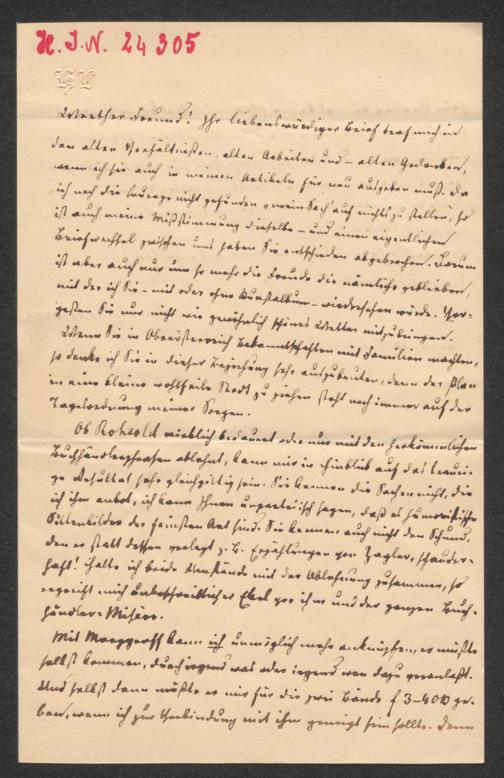 H. I. N. 24305
Werther Freund! Ihr liebenswürdiger Brief traf mich in
den alten Verhältnißen, alten Arbeiten und – alten Gedanken,
wenn ich sie auch in meinen Artikeln für neu ausgeben muß. Da
ich noch die Courage nicht gefunden "mein Sach' auf nichts zu stellen", so
ist auch meine Mißstimmung dieselbe – und einen eigentlichen
Briefwechsel zwischen uns haben Sie entschieden abgebrochen. Darum
ist aber auch nur um so mehr die Freude die nämliche geblieben,
mit der ich Sie – mit oder ohne Kunstalbum – wiedersehen würde. Ver-
geßen Sie nur nicht wie gewöhnlich schönes Wetter mitzubringen.
Wenn Sie in Oberösterreich Bekanntschaften mit Familien machten,
so denke ich Sie in dieser Beziehung sehr auszubeuten; denn der Plan
in eine kleine wohlfeile Stadt zu ziehen steht noch immer auf der
Tagesordnung meiner Sorgen.
Ob Rohsold wirklich bedauert oder nur mit den herkömmlichen
Buchhändlerphrasen ablehnt, kann mir im Hinblick auf das trauri-
ge Resultat sehr gleichgiltig sein. Sie kennen die Sachen nicht, die
ich ihm anbot, ich kann Ihnen unparteiisch sagen, daß es humoristische
Sittenbilder der feinsten Art sind. Sie kennen auch nicht den Schund,
den er statt dessen verlegt z. B. Erzählungen von Ziegler, schauder-
haft! Halte ich beide Umstände mit der Ablehnung zusammen, so
ergreift mich unbeschreiblicher Ekel vor ihm und der ganzen Buch-
händler-Misère.
Mit Marggraff kann ich unmöglich mehr anknüpfen, er müßte
selbst kommen, durch irgend was oder irgend wen dazu veranlaßt.
Und selbst dann müßte er mir für die zwei Bände f 3–400 ge-
ben, wenn ich zur Verbindung mit ihm geneigt sein sollte. Denn